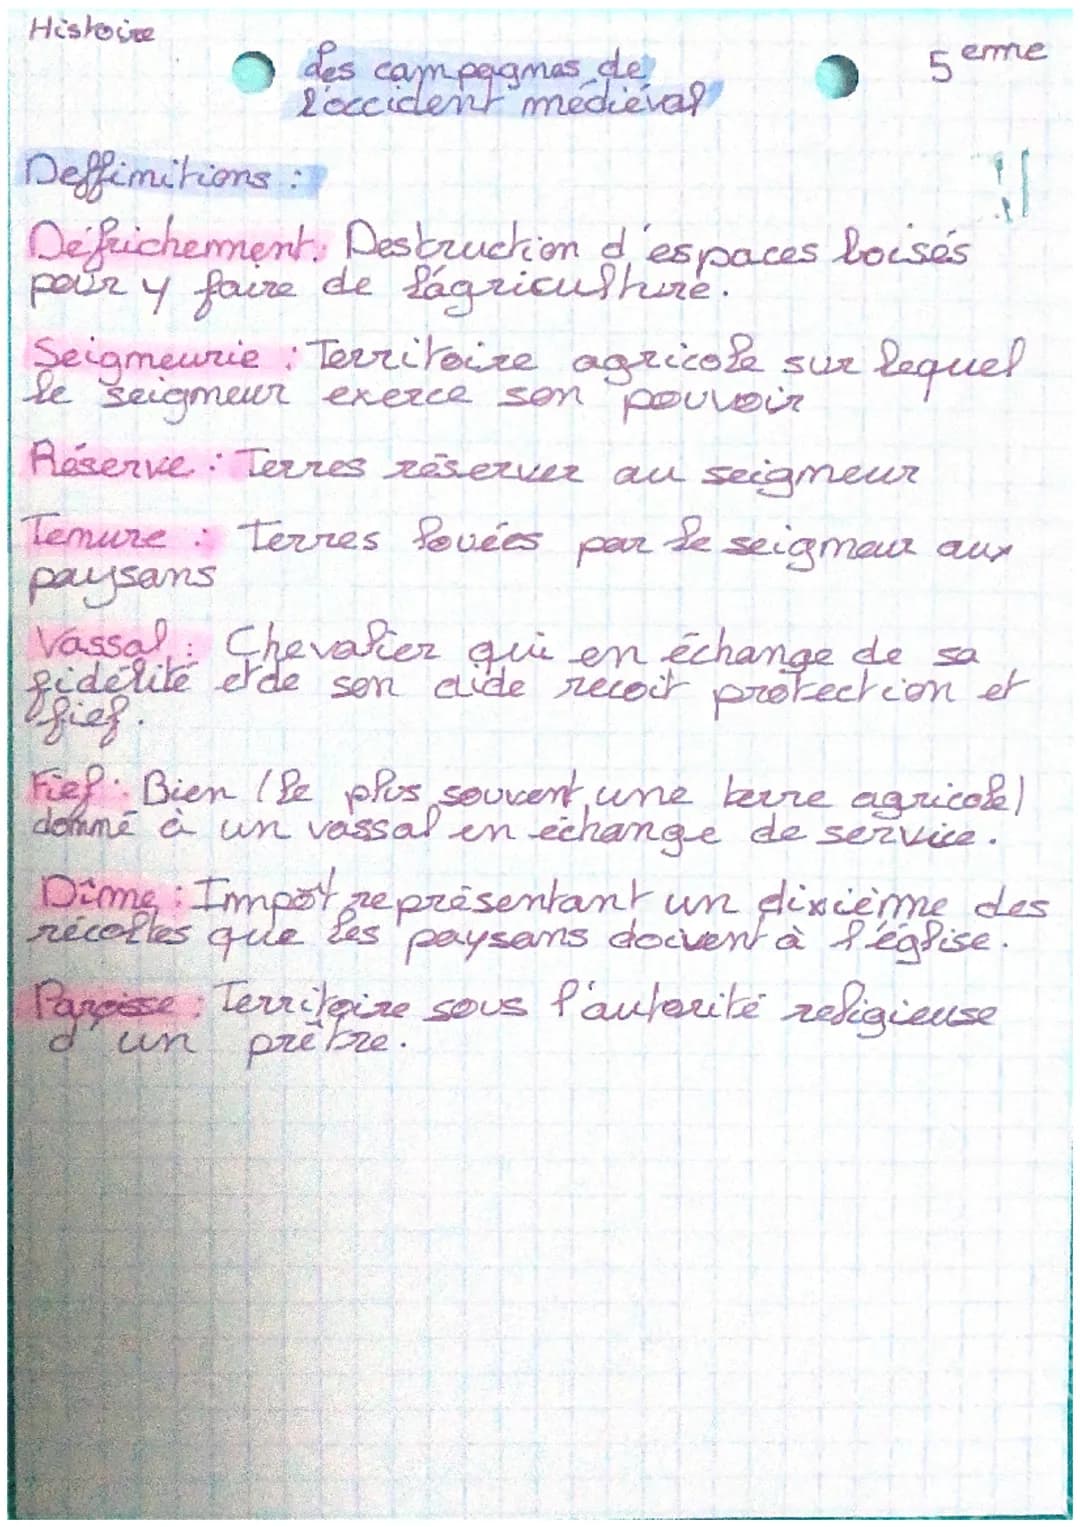 Histoire
5 eme
Les campagnes de
l'occident médiéval
Deffinitions :
Défrichement : Destruction d'espaces boisés
pour y faire de l'agriculture.
Seigneurie : Territoire agricole sur lequel
le seigneur exerce son pouvoir
Réserve : Terres réserver au seigneur
Tenure : Terres louées par le seigneur aux
paysans
Vassal : Chevalier qui en échange de sa
fidélité et de son aide recoit protection et
fief.
Fief : Bien (le plus souvent une terre agricole)
donné à un vassal en échange de service.
Dîme : Impôt représentant un dixième des
récoltes que les paysans doivent à l'église.
Paroisse : Territoire sous l'autorité religieuse
d'un prêtre.